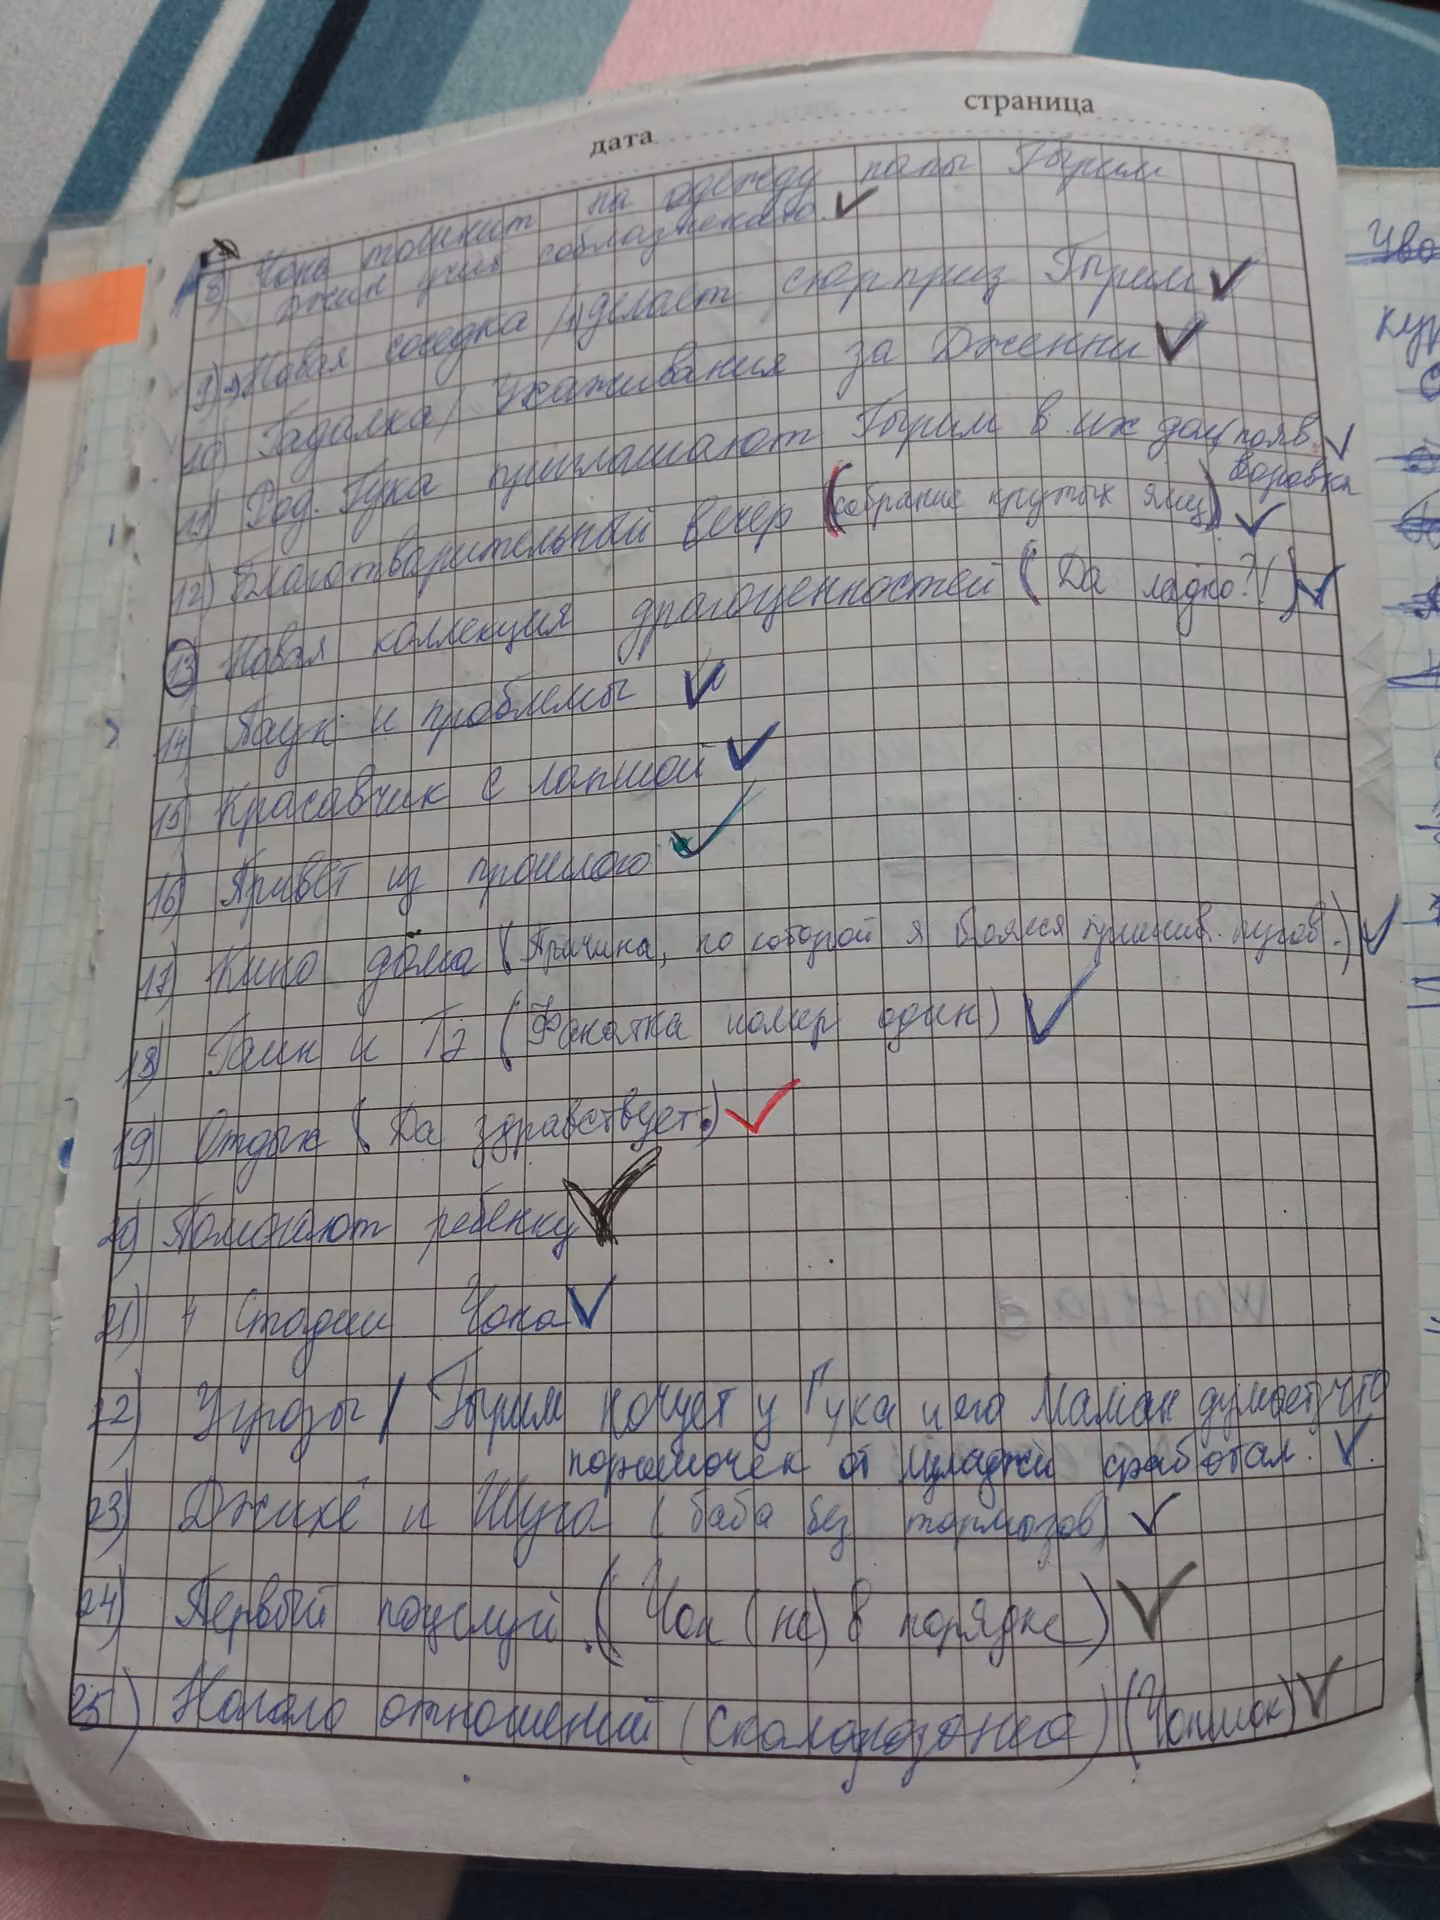 дата страница
8) Чона тошнит на одежду папы Гырим
Джин учит соблазнению.
9) Новая соседка / делает сюрприз Гырим
10) Гадалка / Ухаживания за Дженни
11) Род. Гука приглашают Гырим в их дом (появ.
воровка
12) Благотворительный вечер (собрание крутых яиц)
13) Новая коллекция драгоценностей (Да ладно?!)
14) Паук и проблемы
15) Красавчик с лапшой
16) Привет из прошлого
17) Кино дома (Причина, по которой я боялся пришив. пугов.)
18) Гаин и Тэ (Фанатка номер один)
19) Отдых (Да здравствует)
20) Помогают ребенку
21) 4 Стадии Чона
22) Угрозы / Гырим ночует у Гука и его Маман думает, что
порошочек от сработал.
23) Джихё и Шуга (баба без тормозов)
24) Первый поцелуй. (Чон (не) в порядке)
25) Начало отношений (Скалорозонна) (Чопшок)